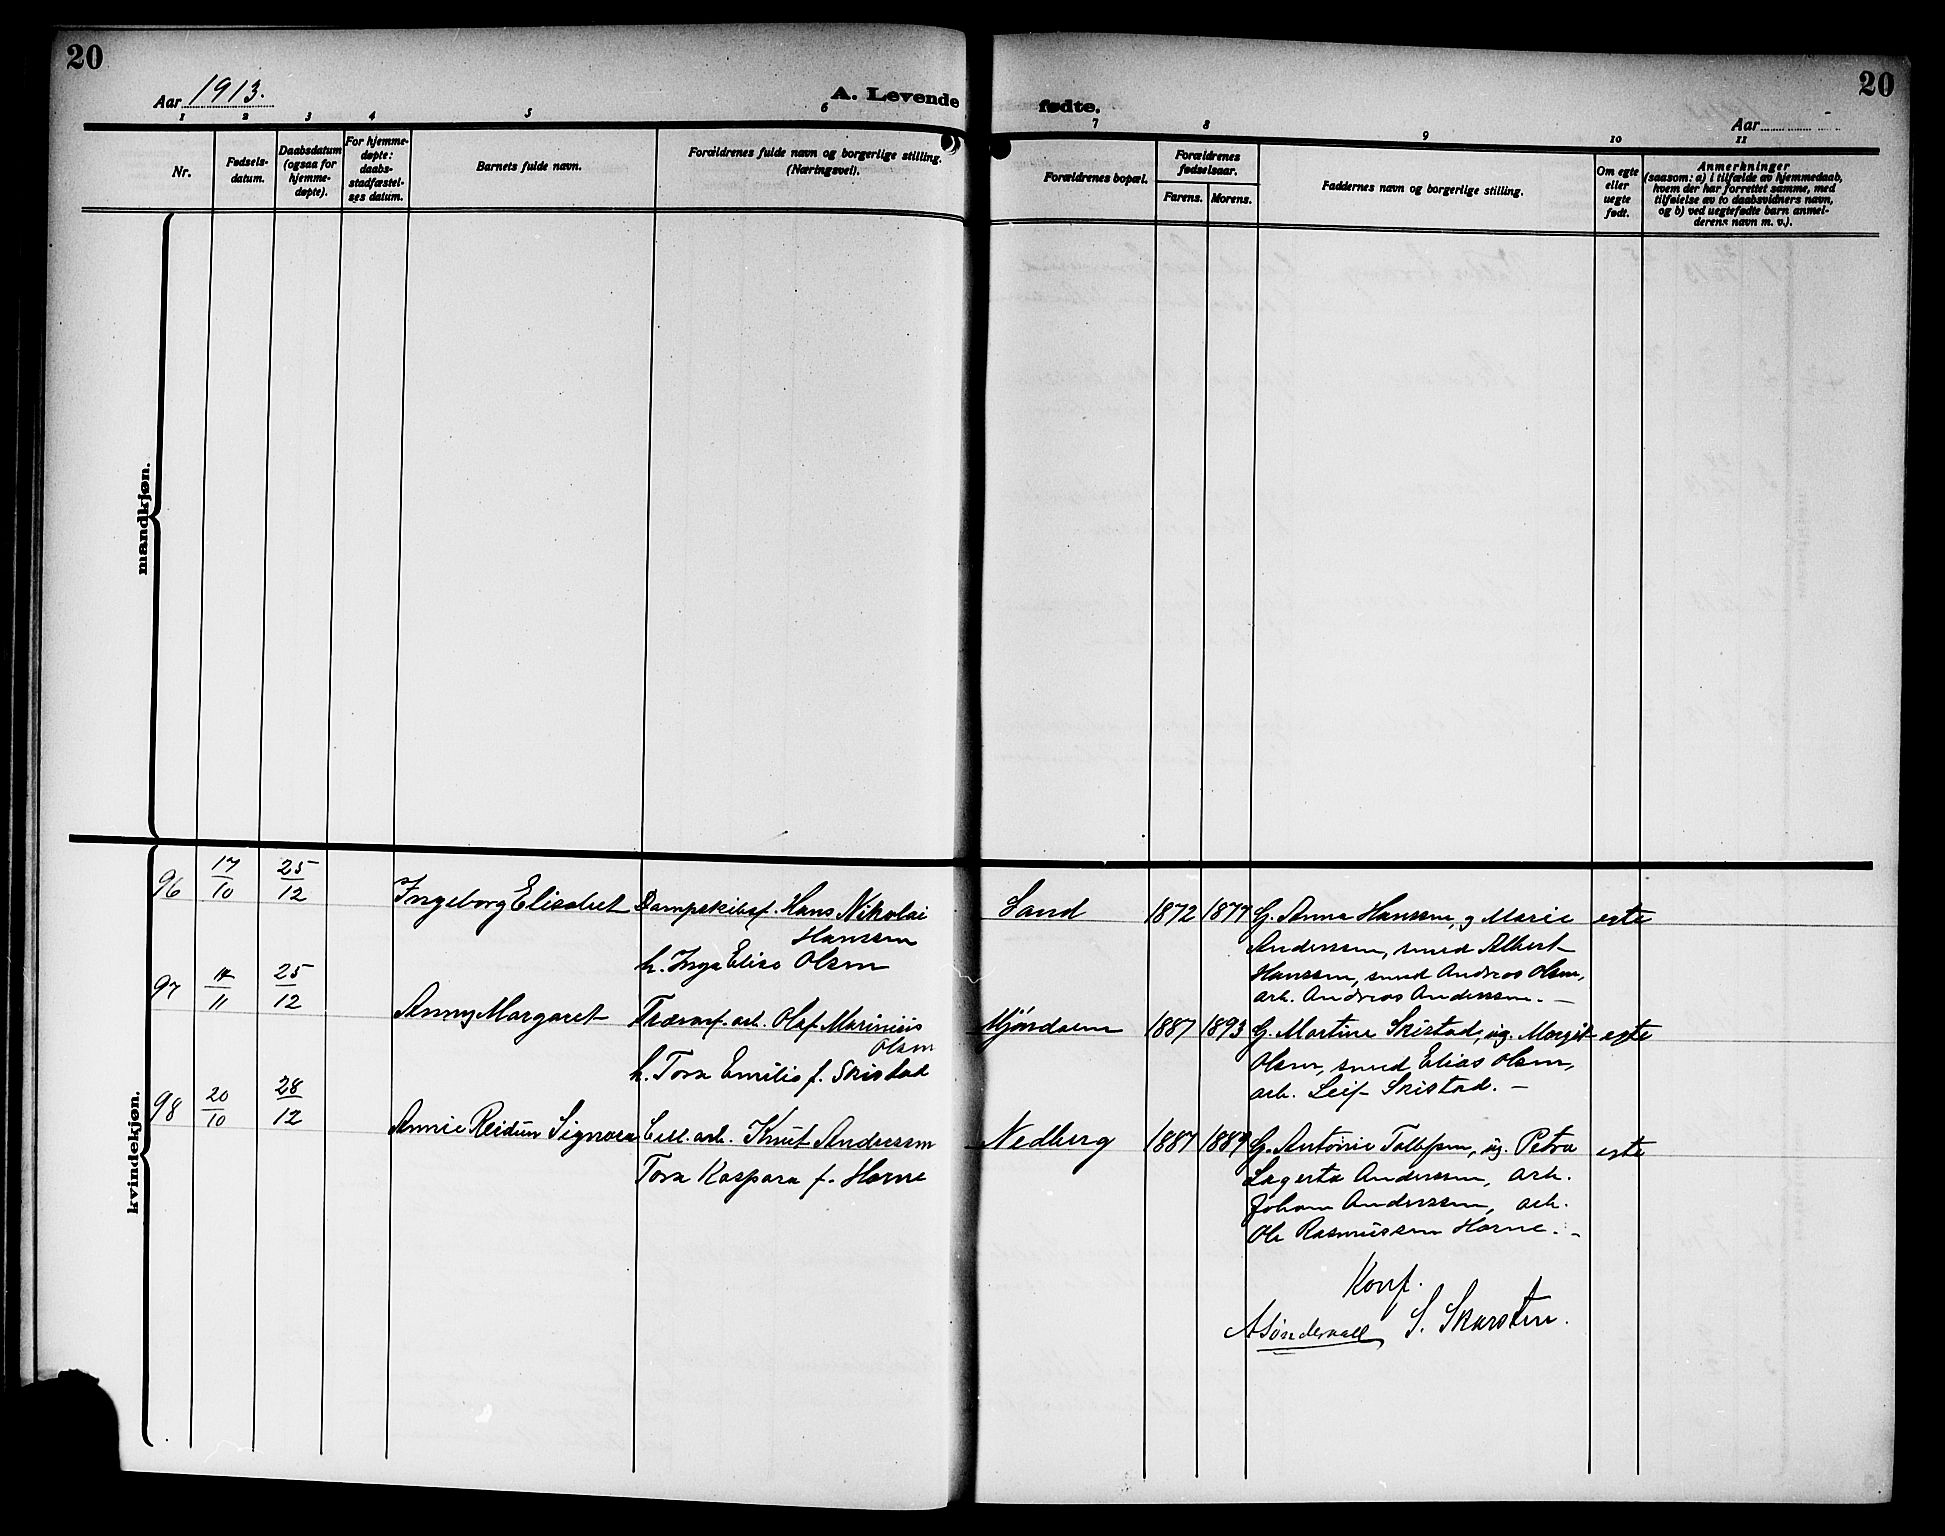 20
20
Aar 1913.
A. Levende fødte.
Aar
1 2 3 4 5 6 7 8 9 10 11
Nr.
Fødsels-
datum.
Daabsdatum
(ogsaa for
hjemme-
døpte).
For hjemme-
døpte:
daabs-
stadfæstel-
ses datum.
Barnets fulde navn.
Forældrenes fulde navn og borgerlige stilling.
(Næringsvei).
Forældrenes bopæl.
Forældrenes
fødselsaar.
Farens. Morens.
Faddernes navn og borgerlige stilling.
Om egte
eller
uegte
født.
Anmerkninger
(saasom: a) i tilfælde av hjemmedaab,
hvem der har forrettet samme, med
tilføielse av to daabsvidners navn,
og b) ved uegtefødte barn anmel-
derens navn m. v.).
mandkjøn.
kvindekjøn.
96 17/10 25/12 Ingeborg Elisabet Dampskibsf. Hans Nikolai
Hanssen
h. Inga Elise Olsen
Sand 1872 1877 G. Anna Hanssen, g Marie egte
Anderssen, smed Albert
Hanssen, smed Andreas Olsen,
arb. Andreas Anderssen. –
97 /11 25/12 Anny Margaret Træmf. arb. Olaf Marinius
Olsen
h. Tora Emilie f. Skistad
Mjøndalen 1887 1893 G. Martine Skistad, ug. Margit egte
Olsen, smed Elias Olsen,
arb. Leif Skistad. –
98 20/10 28/12 Annie Reidun Signora Cell. arb. Knut Anderssen
Tora Kaspara f. Horne
Nedberg 1887 1889 G. Antonie , ug. Petra egte
Lagerta Anderssen, arb.
Johan Anderssen, arb.
Ole Rasmussen Horne. –
Konf.
ASøndervall S. Skarsten.